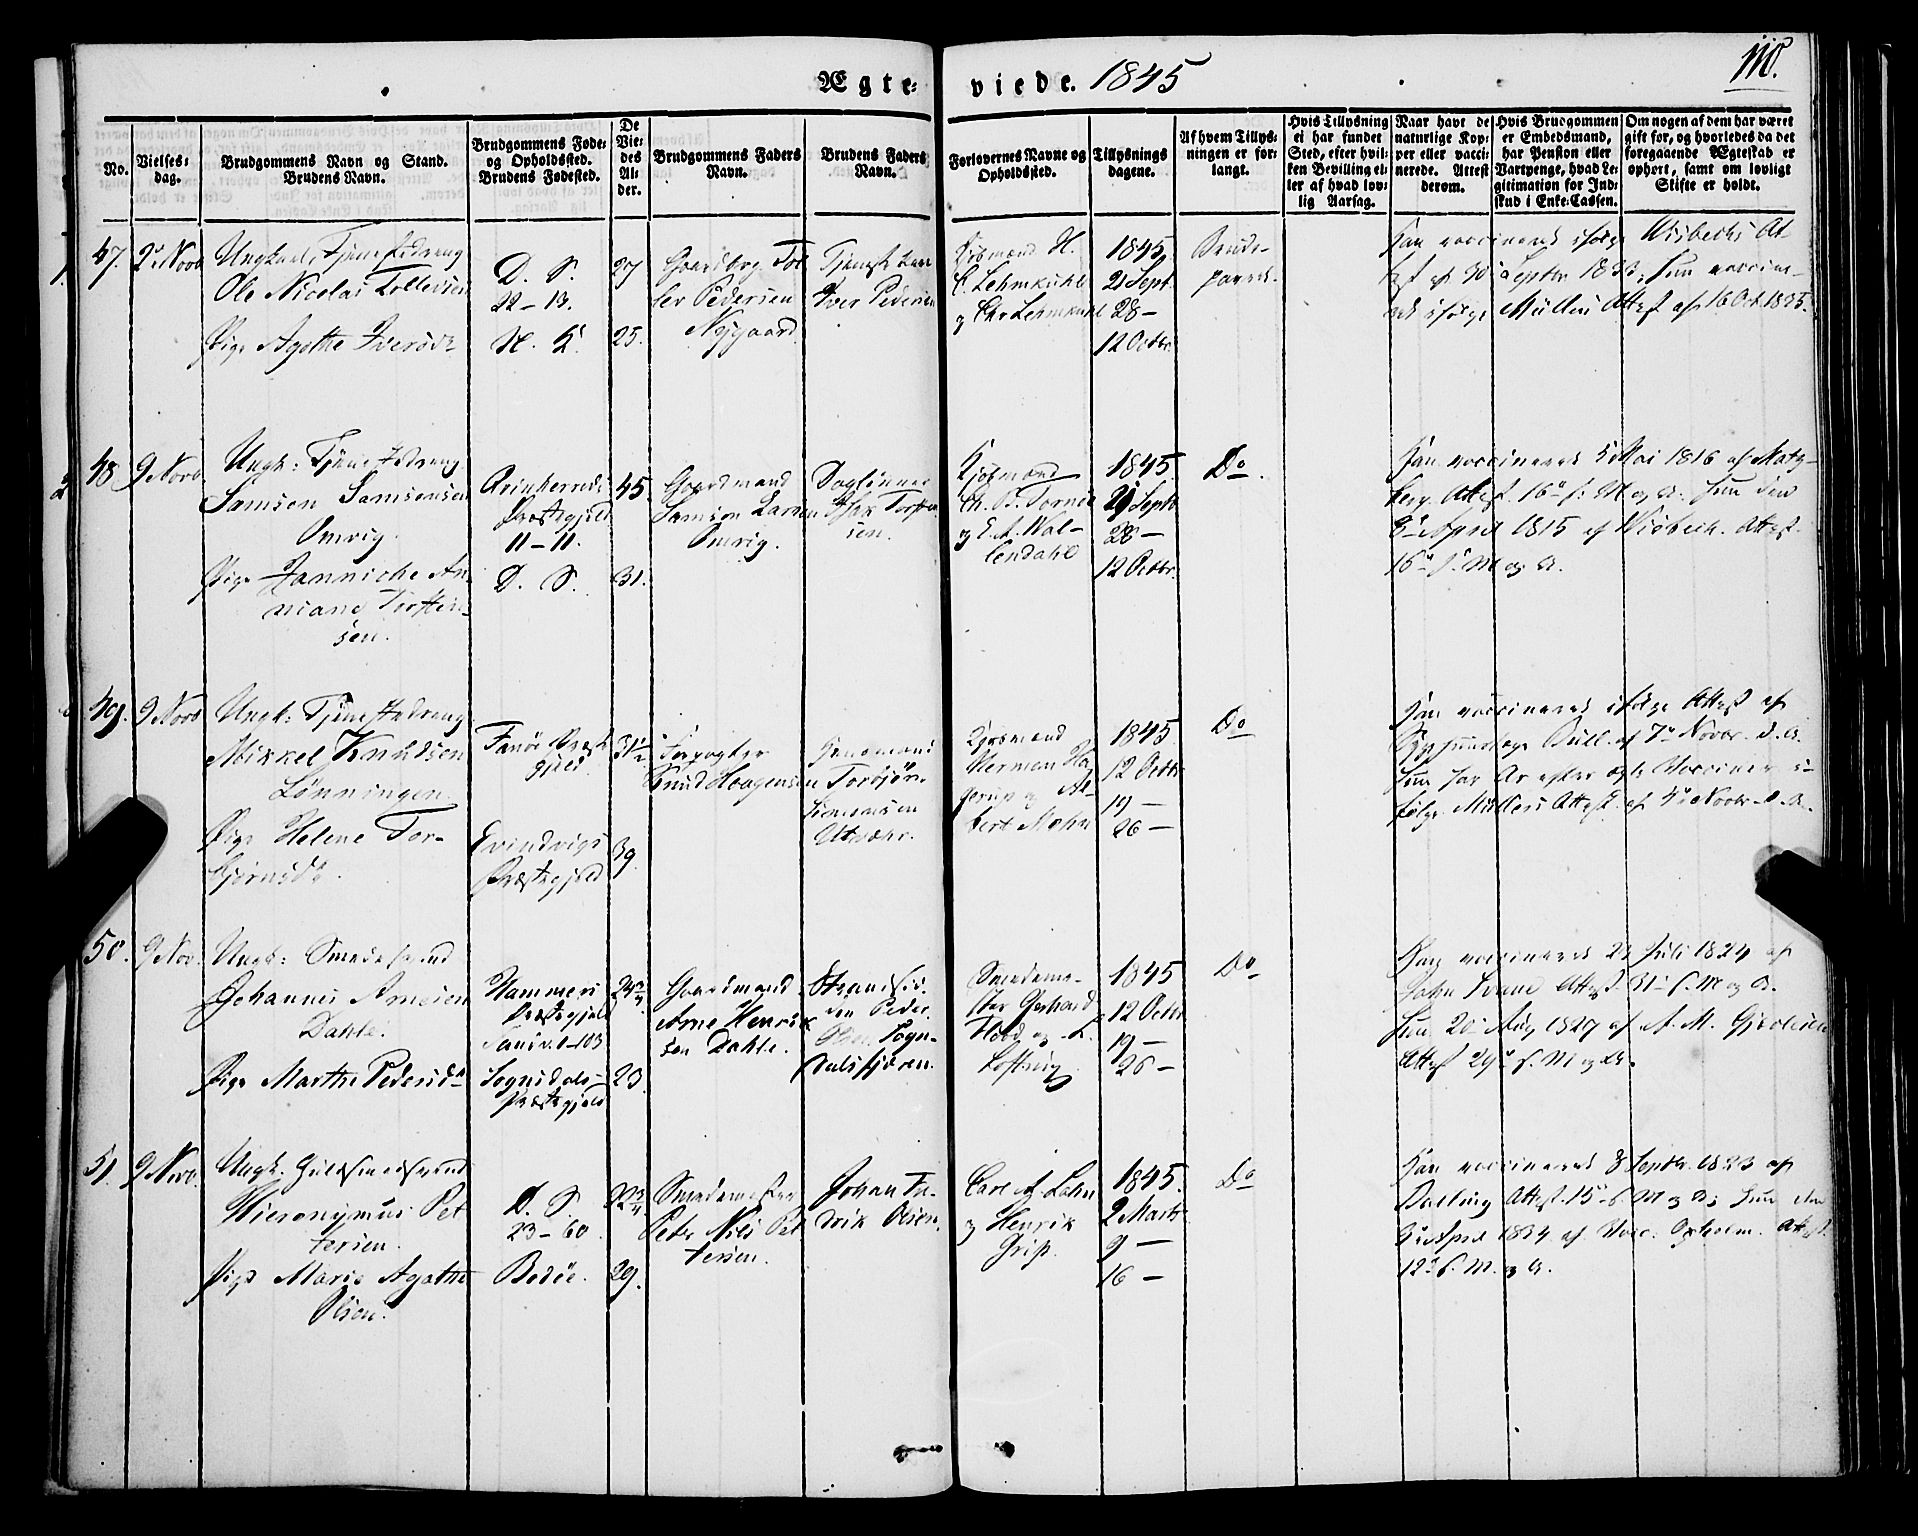 110.
Ægte- viede. 1845
No.
Vielses-
dag.
Brudgommens Navn og Stand.
Brudens Navn.
Brudgommens Føde-
og Opholdssted.
Brudens Fødested.
De
Vie-
des
Al-
der.
Brudgommens Faders
Navn.
Brudens Faders
Navn.
Forlovernes Navne og
Opholdssted.
Tillysnings
dagene.
Af hvem Tillys-
ningen er for-
langt.
Hvis Tillysning
ei har fundet
Sted, efter hvil-
ken Bevilling el-
ler af hvad lov-
lig Aarsag.
Naar havt de
naturlige Kop-
per eller vacci-
nerede. Attest
derom.
Hvis Brudgommen
er Embedsmand,
har Pension eller
Vartpenge, hvad Le-
gitimation for Ind-
skud i Enke-Cassen.
Om nogen af dem har været
gift før, og hvorledes da det
foregaaende Ægteskab er
ophørt, samt om lovligt
Skifte er holdt.
47.
2 Novb
Ungkarl, Tjenestedreng
Ole Nicolai Tollevsen
Pige Agathe Iversdr
D. S.
22-13.
N. K.
27
25.
Gaardbrg. Tol
lev Pedersen
Nygaard
Tjenestekarl
Iver Pedersen
H.
C. Lehmkuhl
og Chr Lehmkuhl
1845
21 Sept.
28 —
12 Octbr.
Brude-
parret.
Han vaccineret ifølge Wisbechs At
test af 30 Septbr 1833; Hun vaccine-
ret ifølge Müllers Attest af 16 Oct. 1825.
48
9 Novb
Ungk: Tjenestedreng
Samson Samsonsen
Omvig.
Pige Janniche An
niane Torsten-
sen.
Qvinherreds
Præstegjeld
11-11.
D. S.
45.
31.
Gaardmand
Samson Larsen
Omvig.
Dagleiner
Torsten
sen.
Kjøbmænd
og E. A. Wal-
lendahl
1845
21 Septb
28 —
12 Octbr.
Do.
Han vaccineret 5 Mai 1816 af
berg. Attest. 16 s: M og A. Hun den
April 1815 af Wisbech. Attest.
16 s. M og A.
49.
9 Novb
Ungk: Tjenestedreng
Mikkel Knudsen
Lønningen.
Pige Helene Tor-
bjørnsdr.
Fanøe Præste
gjeld
Evindvigs
Præstegjeld
31½
39.
Forpagter
Knud Haagensen
Torbjørn
Simonsen
Utvær.
Kjøbmænd
Herman Ha
gerup og Al-
bert Mohn
1845
12 Octbr
19 —
26 —
Do
Han vaccineret ifølge Attest af
Bull af 7 Novbr. d. A.
Hun har Ar efter ægte Vacciner i-
følge Müllers Attest af 4 Novbr d. A.
50.
9 Nov.
Ungk: Smedesvend
Johannes Arnesen
Dahle.
Pige Marthe Pedersdr
Hammers
Præstegjeld
Sogndals-
Præstegjeld
24¾
23.
Gaardmand
Arne Henrik
sen Dahle.
Strandsid.
den Peder
Sogn-
dalsfjæren.
Smedeme-
ster Gerhard
Flood og L.
Loftnig
1845
12 Octbr
19 —
26 —
Do
Han vaccineret 22 Juli 1824 af
John Attest 31 s. M og A.
Hun 20 Aug 1827 af A. M.
Attest 29 s. M og A.
51.
9 Novb.
Ungk. Guldsmedsvend
Hieronymus Pet
tersen.
Pige Marie Agathe
Olsen.
D. S.
23-60
Bodøe.
22¾
29.
Smedemester
Peter Nils Pet
tersen.
Johan Fr-
drik Olsen.
Carl A. Lohn
og Henrik
Grip.
1845.
2 Marts
9 —
16 —
Do
Han vaccineret 8 Septbr. 1823 af
Attest 15 s. M og A; Hun den
April 1834 af Vacc. Oxholm. Attest.
12 s. M. og A.